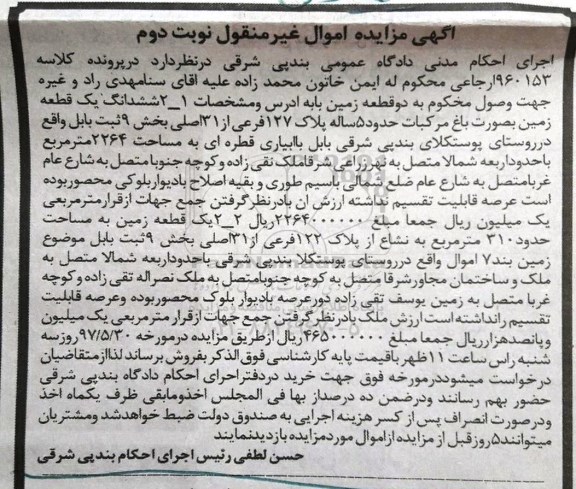 آگهی مزایده اموال غیرمنقول نوبت دوم
اجرای احکام مدنی دادگاه عمومی بندپی شرقی درنظردارد درپرونده کلاسه
۹۶۰۱۵۳ارجاعی محکوم له ایمن خاتون محمد زاده علیه آقای سنامهدی راد و غیره
جهت وصول مخکوم به دوقطعه زمین بابه ادرس ومشخصات ۱_۲ششدانگ یک قطعه
زمین بصورت باغ مرکبات حدود۵ساله پلاک ۱۲۷فرعی از۳۱اصلی بخش ۹ثبت بابل واقع
درروستای پوستکلای بندپی شرقی بابل باآبیاری قطره ای به مساحت ۲۲۶۴مترمربع
باحدوداربعه شمالا متصل به نهرزراعی شرقاملک نقی زاده وکوچه جنوبا متصل به شارع عام
غربامتصل به شارع عام ضلع شمالی باسیم طوری و بقیه اصلاح بادیواربلوکی محصوربوده
است عرصه قابلیت تقسیم نداشته ارزش ان بادرنظرگرفتن جمع جهات ازقرارمترمربعی
یک میلیون ریال جمعا مبلغ ۲۲۶۴۰۰۰۰۰۰ریال ۲_۲یک قطعه زمین به مساحت
حدود۳۱۰ مترمربع به نشاع از پلاک ۱۲۲فرعی از۳۱اصلی بخش ۹ثبت بابل موضوع
زمین بند۷ اموال واقع درروستای پوستکلا بندپی شرقی باحدوداربعه شمالا متصل به
ملک و ساختمان مجاورشرقا متصل به کوچه جنوبامتصل به ملک نصراله تقی زاده وکوچه
غربا متصل به زمین یوسف تقی زاده دورعرصه بادیوار بلوک محصوربوده وعرصه قابلیت
تقسیم رانداشته است ارزش ملک بادرنظر گرفتن جمع جهات ازقرار مترمربعی یک میلیون
وپانصدهزارریال جمعا مبلغ ۴۶۵۰۰۰۰۰۰ریال ازطریق مزایده درمورخه ۹۷/۵/۳۰روزسه
شنبه راس ساعت ۱۱ظهر باقیمت پایه کارشناسی فوق الذکر بفروش برساند لذاازمتقاضیان
درخواست میشوددرمورخه فوق جهت خرید دردفتراجرای احکام دادگاه بندپی شرقی
حضور بهم رسانند ودرضمن ده درصداز بها فی المجلس اخذومابقی ظرف یکماه اخذ
ودرصورت انصراف پس از کسر هزینه اجرایی به صندوق دولت ضبط خواهدشد ومشتریان
میتوانند۵روزقبل از مزایده ازاموال موردمزایده بازدیدنمایند
حسن لطفی رئیس اجرای احکام بندپی شرقی